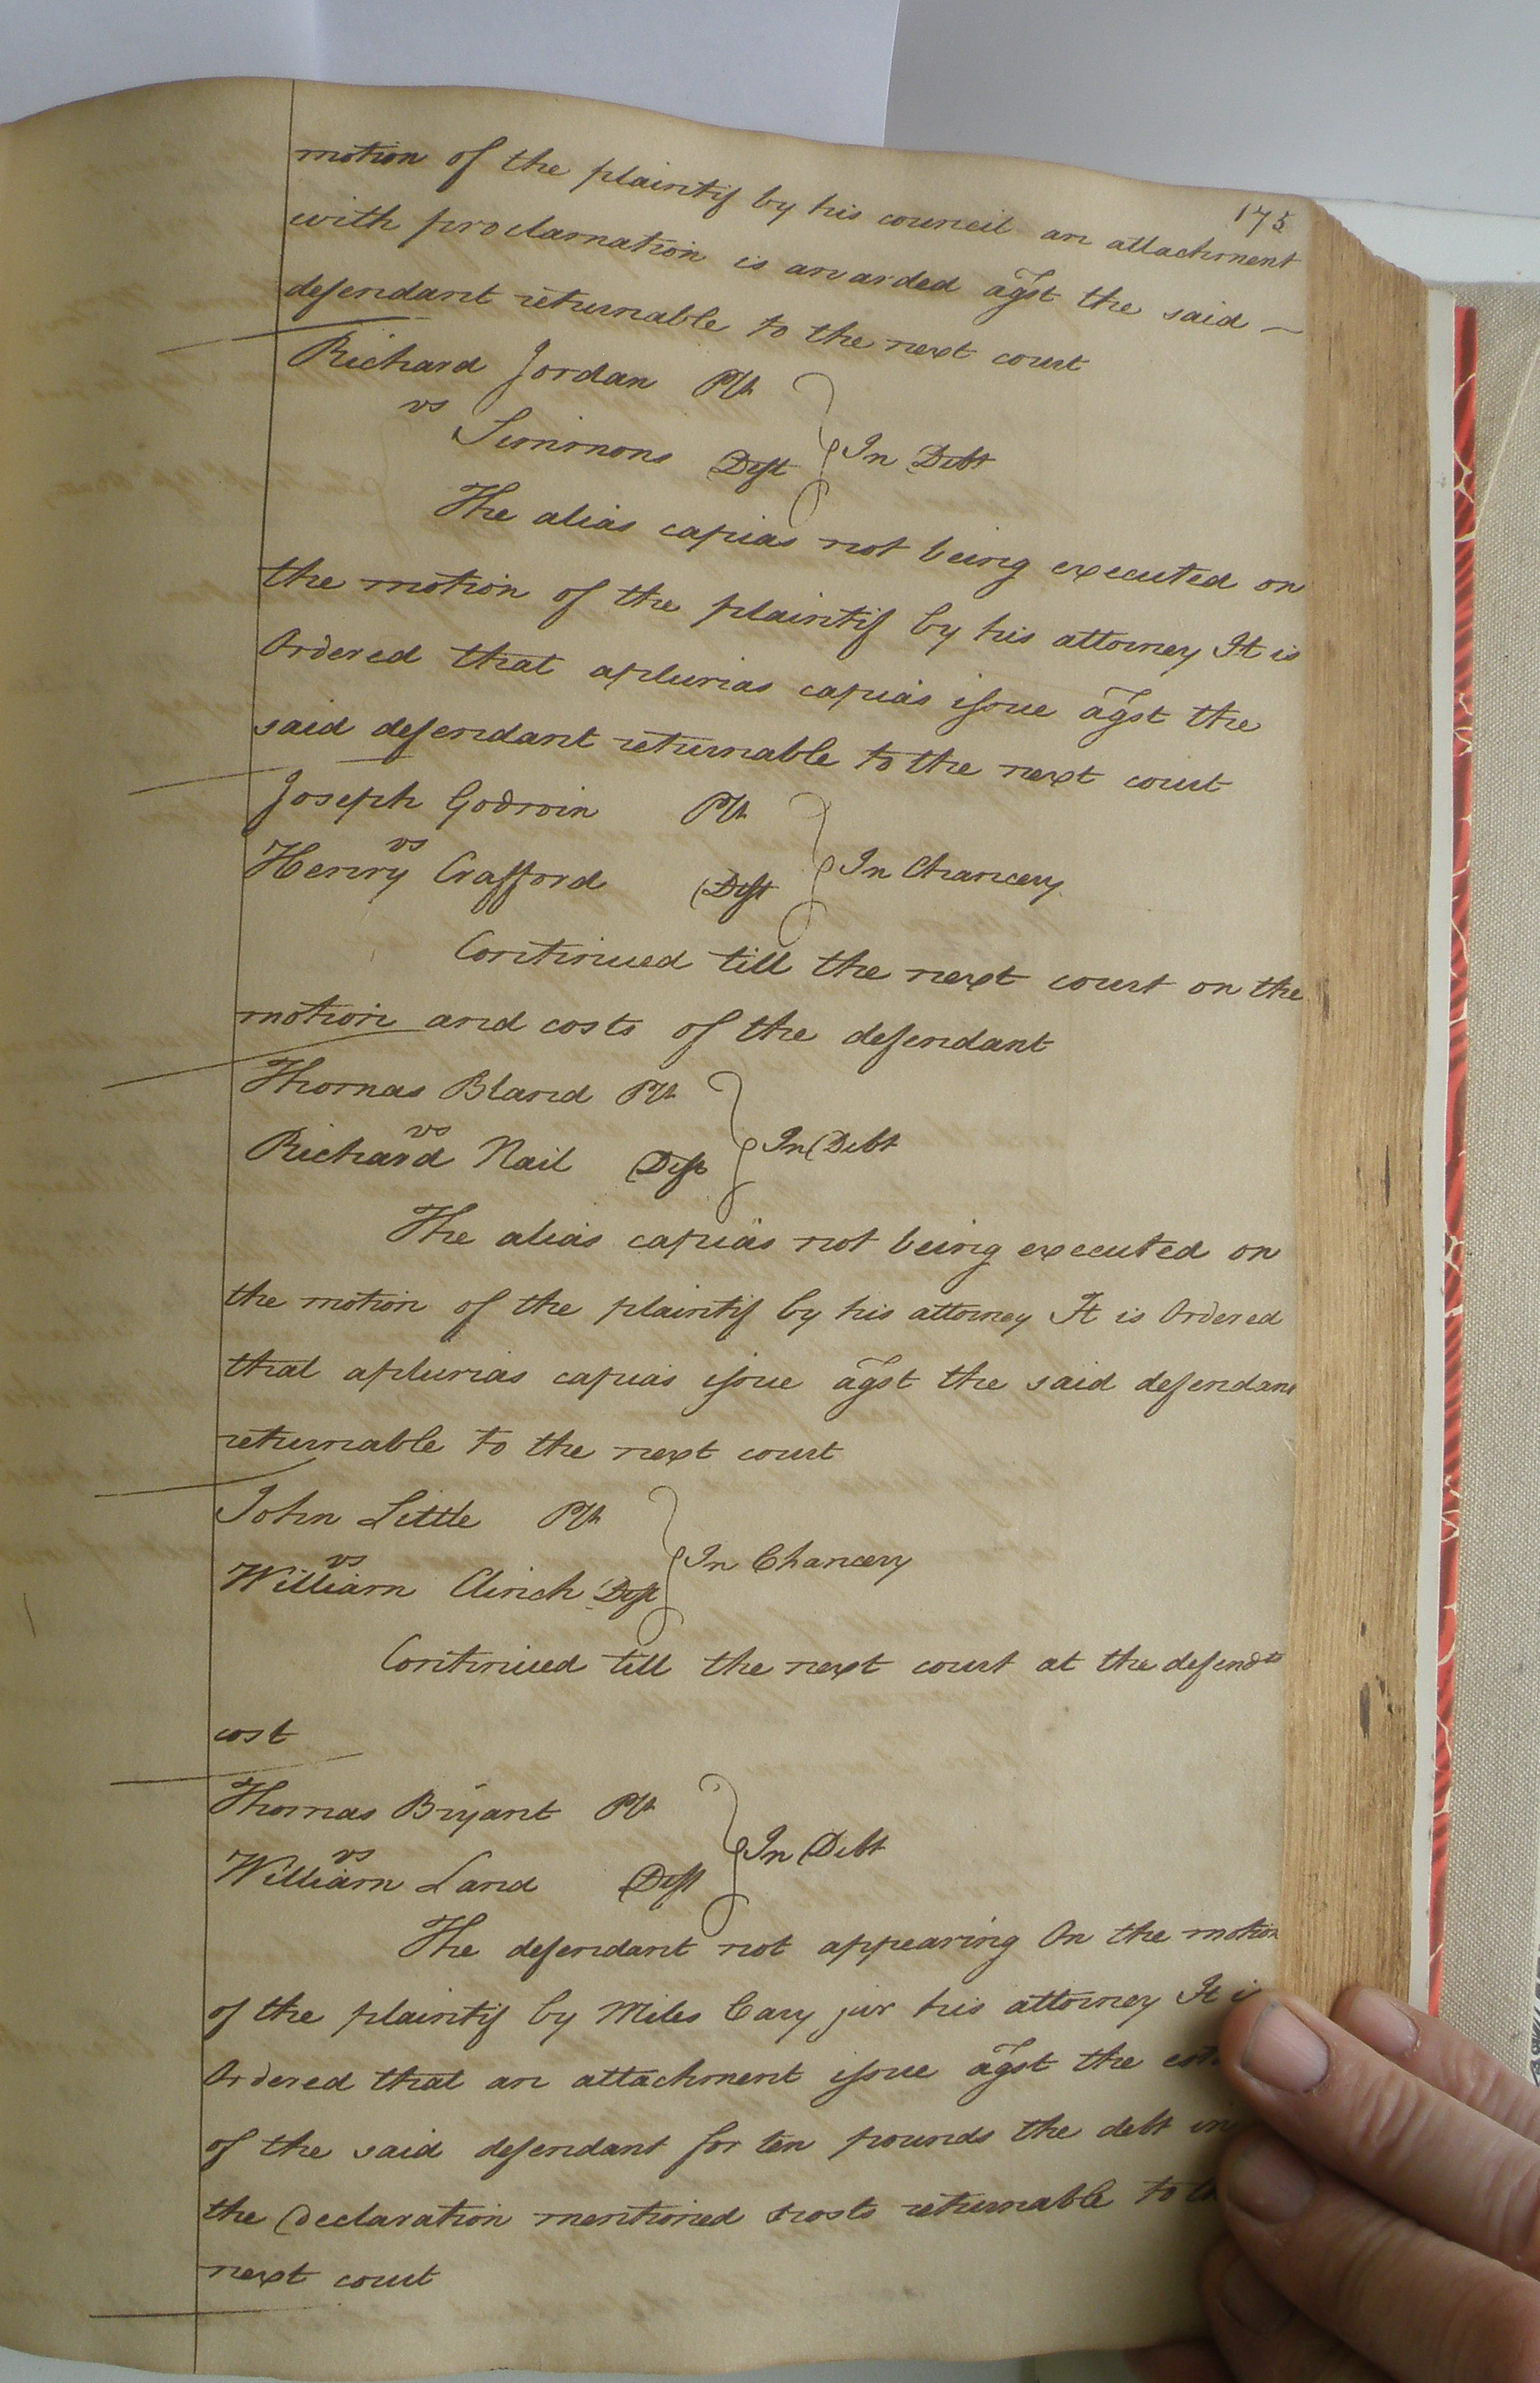 175
motion of the plaintif by his council an attachment
with proclamation is awarded agst the said —
defendant returnable to the next court
Richard Jordan Plt
vs
Simmons Deft } In Debt
The alias capias not being executed on
the motion of the plaintif by his attorney It is
Ordered that aplurias capias issue agst the
said defendant returnable to the next court
Joseph Godwin Plt
vs
Henry Crafford Deft } In Chancery
Continued till the next court on the
motion and costs of the defendant
Thomas Bland Plt
vs
Richard Nail Deft } In Debt
The alias capias not being executed on
the motion of the plaintif by his attorney It is Ordered
that aplurias capias issue agst the said defendant
returnable to the next court
John Little Plt
vs
William Clinch Deft } In Chancery
Continued till the next court at the defendts
cost
Thomas Bryant Plt
vs
William Land Deft } In Debt
The defendant not appearing On the motion
of the plaintif by Miles Cary jur his attorney It is
Ordered that an attachment issue agst the
of the said defendant for ten pounds the debt in
the Declaration mentioned & costs returnable to
next court